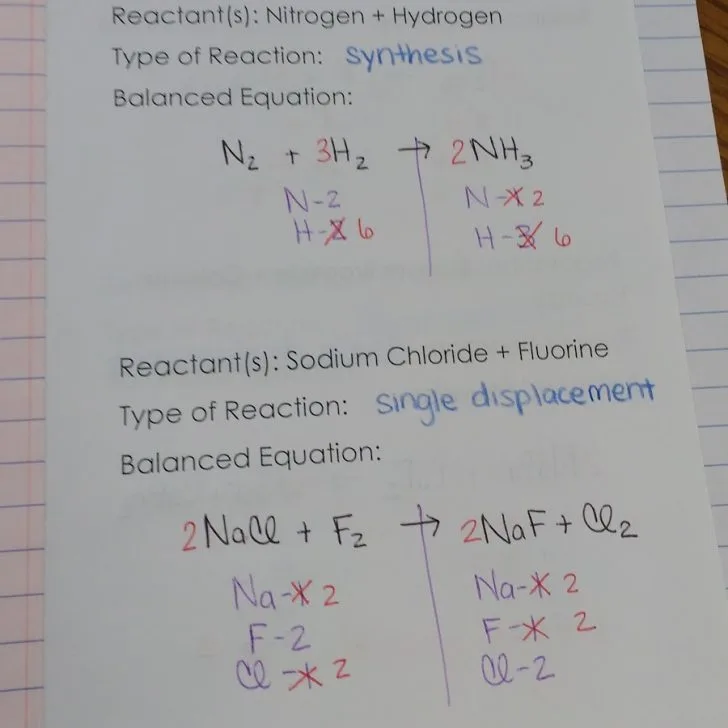 Reactant(s): Nitrogen + Hydrogen
Type of Reaction: synthesis
Balanced Equation:
N₂ + 3H₂ → 2NH₃
N-2 N- 2
H-2 6 H-3 6
Reactant(s): Sodium Chloride + Fluorine
Type of Reaction: single displacement
Balanced Equation:
2NaCl + F₂ → 2NaF + Cl₂
Na- 2 Na- 2
F-2 F- 2
Cl- 2 Cl-2